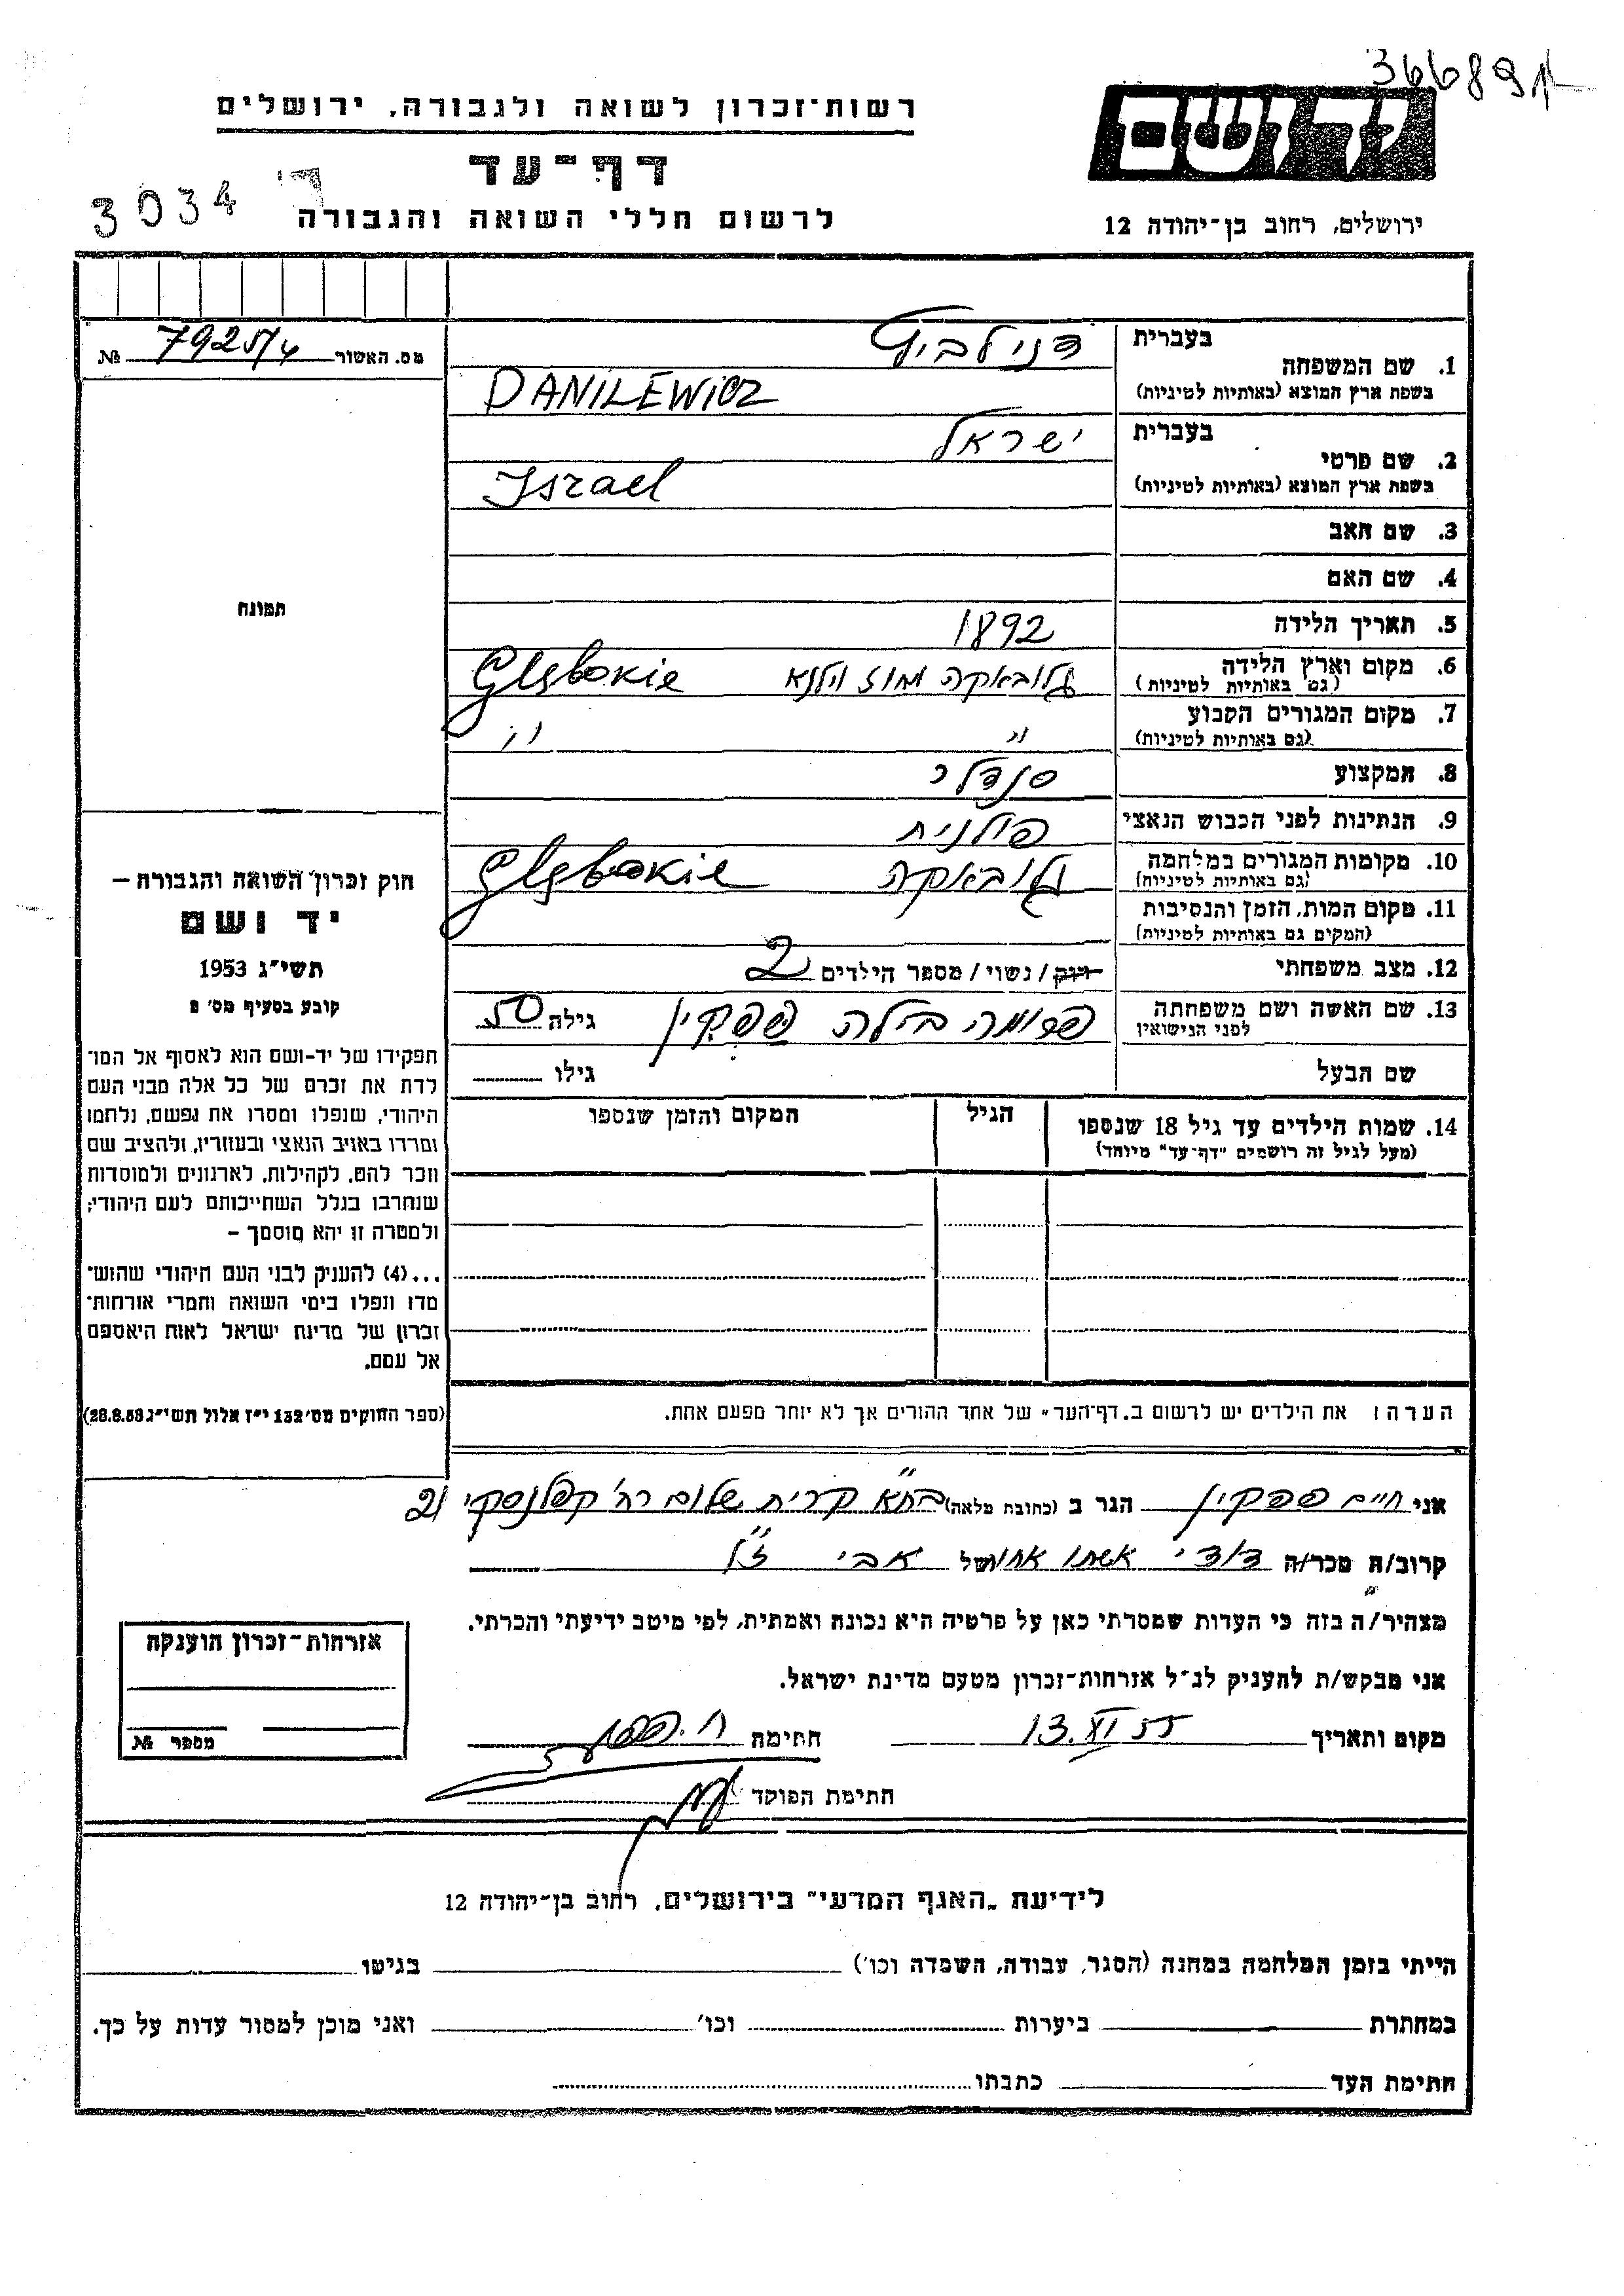 366891
יד ושם
רשות־זכרון לשואה ולגבורה, ירושלים
דף־עד
3034
לרשום חללי השואה והגבורה
ירושלים, רחוב בן־יהודה 12
מס. האשור 7925/4 №
1. שם המשפחה
בעברית דנילביץ
בשפת ארץ המוצא (באותיות לטיניות) DANILEWICZ
2. שם פרטי
בעברית ישראל
בשפת ארץ המוצא (באותיות לטיניות) Israel
3. שם האב
4. שם האם
5. תאריך הלידה 1892
6. מקום וארץ הלידה גלובאקה מחוז וילנא Glębokie
(גם באותיות לטיניות)
7. מקום המגורים הקבוע " "
(גם באותיות לטיניות)
8. המקצוע סנדלר
9. הנתינות לפני הכבוש הנאצי פולנית
10. מקומות המגורים במלחמה גלובאקה Glębokie
(גם באותיות לטיניות)
11. מקום המות, הזמן והנסיבות
(המקום גם באותיות לטיניות)
12. מצב משפחתי רווק / נשוי / מספר הילדים 2
13. שם האשה ושם משפחתה פרומה ביילה פפקין גילה 50
לפני הנישואין
שם הבעל גילו
14. שמות הילדים עד גיל 18 שנספו הגיל המקום והזמן שנספו
(מעל לגיל זה רושמים "דף־עד" מיוחד)
הערה: את הילדים יש לרשום ב„דף־העד" של אחד ההורים אך לא יותר מפעם אחת.
תמונה
חוק זכרון השואה והגבורה –
יד ושם
תשי"ג 1953
קובע בסעיף מס' 2
תפקידו של יד־ושם הוא לאסוף אל המו־
לדת את זכרם של כל אלה מבני העם
היהודי, שנפלו ומסרו את נפשם, נלחמו
ומרדו באויב הנאצי ובעוזריו, ולהציב שם
וזכר להם, לקהילות, לארגונים ולמוסדות
שנחרבו בגלל השתייכותם לעם היהודי;
ולמטרה זו יהא מוסמך –
...(4) להעניק לבני העם היהודי שהוש־
מדו ונפלו בימי השואה והמרי אזרחות־
זכרון של מדינת ישראל לאות היאספם
אל עמם.
(ספר החוקים מס' 132 י"ז אלול תשי"ג 28.8.53)
אני חיים פפקין הגר ב (כתובת מלאה) בת"א קרית שלום רח' קפלנסקי 21
קרוב/ה מכר/ה דודי אשתו אחות של אבי ז"ל
מצהיר/ה בזה כי העדות שמסרתי כאן על פרטיה היא נכונה ואמתית, לפי מיטב ידיעתי והכרתי.
אני מבקש/ת להעניק לנ"ל אזרחות־זכרון מטעם מדינת ישראל.
מקום ותאריך 13.XI 55 חתימה
חתימת הפוקד
אזרחות־זכרון הוענקה
מספר №
לידיעת „האגף המדעי" בירושלים, רחוב בן־יהודה 12
הייתי בזמן המלחמה במחנה (הסגר, עבודה, השמדה וכו') בגיטו
במחתרת ביערות וכו' ואני מוכן למסור עדות על כך.
חתימת העד כתבתו